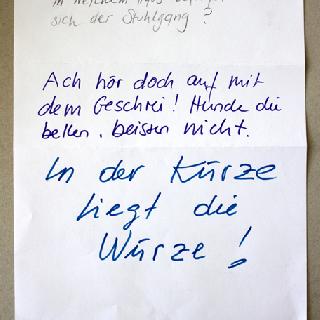 in welchem
sich der Stuhlgang?
Ach hör doch auf mit
dem Geschrei! Hunde die
bellen, beissen nicht.
In der Kürze
liegt die
Würze!